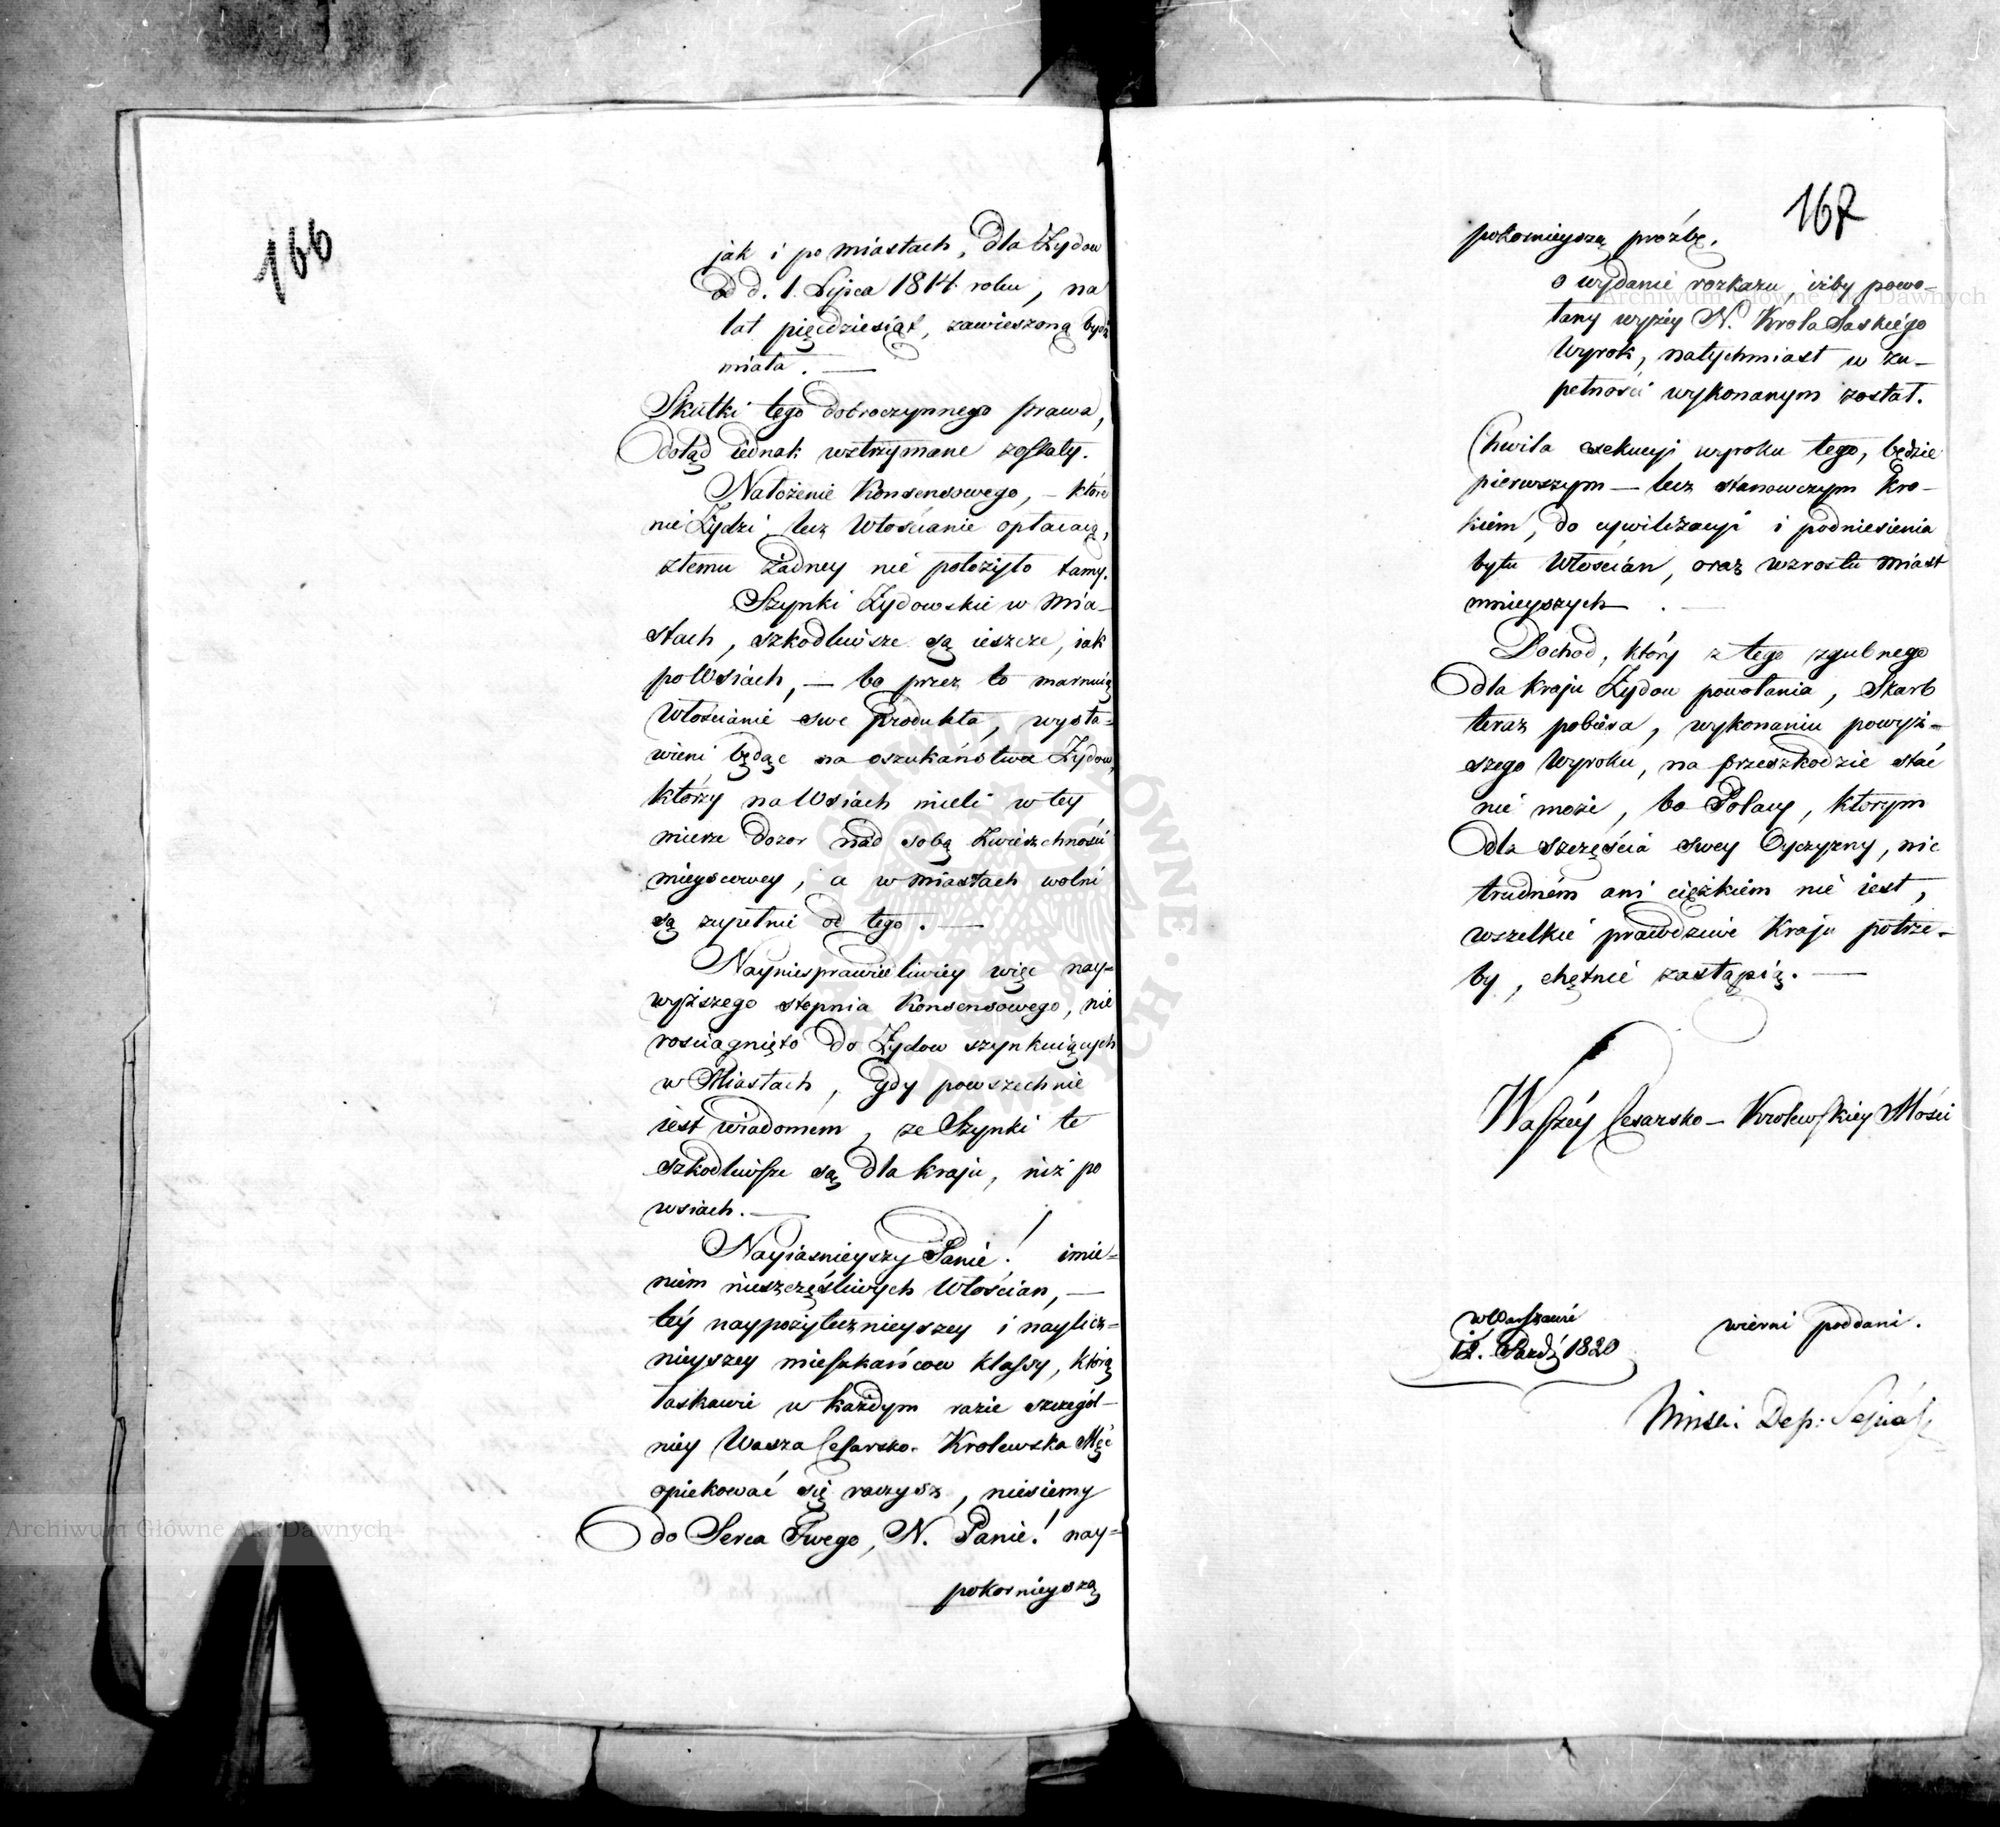 166
jak i po miastach, dla Żydow
od d. 1. Lipca 1814. roku, na
lat pięćdziesiąt, zawieszoną bydź
miała. —
Skutki tego dobroczynnego prawa,
dotąd iednak wstrzymane zostały.
Nałożenie Konsensowego, — które
nie Żydzi, lecz Włościanie opłacaią,
złemu żadney nie położyło tamy.
Szynki Żydowskie w Mia-
stach, szkodliwsze są ieszcze, iak
po Wsiach, — bo przez to marnuią
Włościanie swe produkta, wysta-
wieni będąc na oszukaństwa Żydow,
którzy na Wsiach mieli w tey
mierze dozor nad sobą Zwierzchności
mieyscowey, a w miastach wolni
są zupełnie od tego. —
Nayniesprawiedliwiey więc nay-
wyższego stopnia Konsensowego, nie
rosciągnięto do Żydow szynkuiących
w Miastach, gdy powszechnie
iest wiadomem, że Szynki te
szkodliwsze są dla kraju, niż po
wsiach. —
Nayiasnieyszy Panie! imie-
niem nieszczęśliwych Włościan, —
téy naypożytecznieyszey i naylicz-
nieyszey mieszkańcow klassy, którą
łaskawie w każdym razie szczegól-
niey Wasza Cesarsko-Krolewska Mść
opiekować się raczysz, niesiemy
do Serca Twego, N. Panie! nay-
pokornieyszą
167
pokornieyszą prożbę,
o wydanie rozkazu, iżby powo-
łany wyżéy N. Krola Saskiégo
Wyrok, natychmiast w zu-
pełności wykonanym został.
Chwila exekucyi wyroku tego, będzie
pierwszym — lecz stanowczym kro-
kiem, do cywilizacyi i podniesienia
bytu Włościan, oraz wzrostu miast
mnieyszych. —
Dochod, który z tego zgubnego
dla kraju Żydow powołania, Skarb
teraz pobiera, wykonaniu powyż-
szego Wyroku, na przeszkodzie stać
nie może, bo Polacy, którym
dla szczęścia swey Oyczyzny, nic
trudném ani ciężkiem nie iest,
wszelkie prawdziwe Kraju potrze-
by, chętnie zastąpią. —
Waszéy Cesarsko-Krolewskiey Mości
w Warszawie
12. Paźdź 1820
wierni poddani.
Dep:
Archiwum Główne Akt Dawnych
Archiwum Główne Akt Dawnych